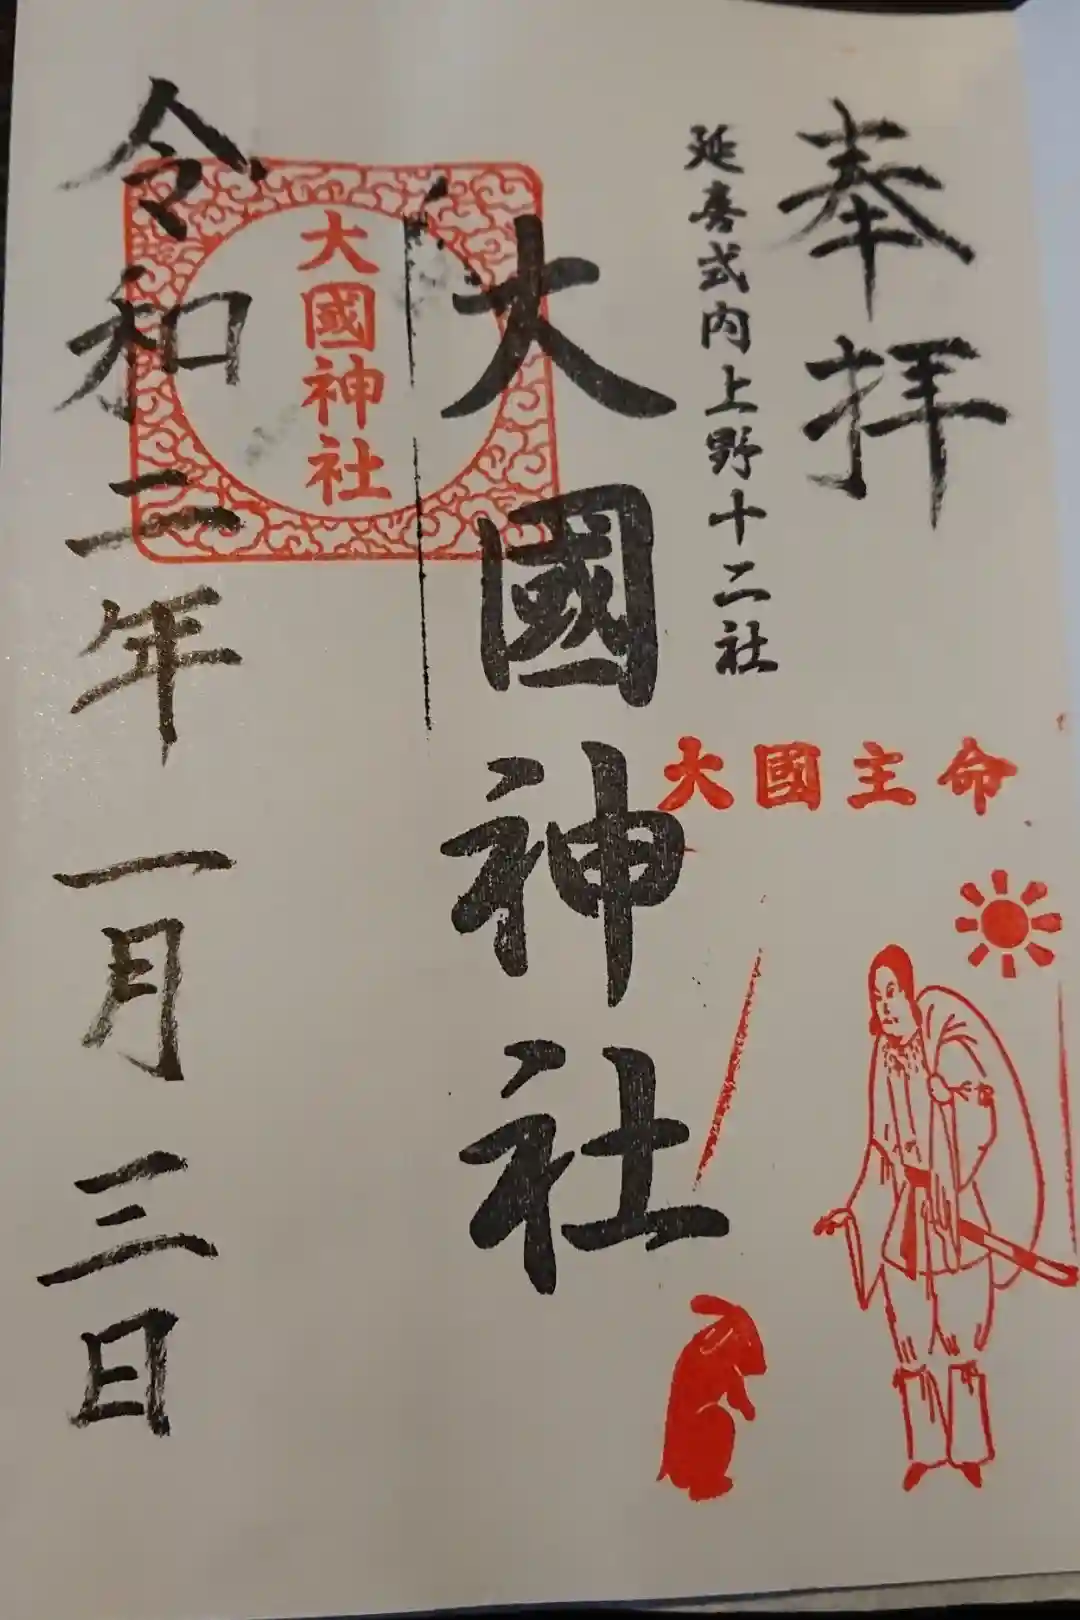 奉拝
延喜式内上野十二社
大國主命
大國神社
大國神社
令和二年一月三日